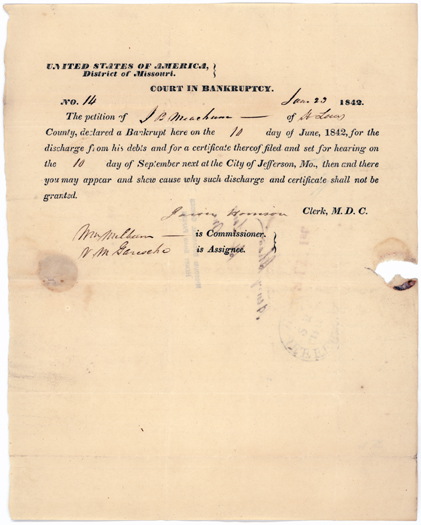 UNITED STATES OF AMERICA, }
District of Missouri.
COURT IN BANKRUPTCY.
NO. 14 June 23 1842.
The petition of J B Meachum — of St Louis
County, declared a Bankrupt here on the 10 day of June, 1842, for the
discharge from his debts and for a certificate thereof filed and set for hearing on
the 10 day of September next at the City of Jefferson, Mo., then and there
you may appear and shew cause why such discharge and certificate shall not be
granted.
Clerk, M. D. C.
Wm Milburn — is Commissioner. }
V M Garesche is Assignee.